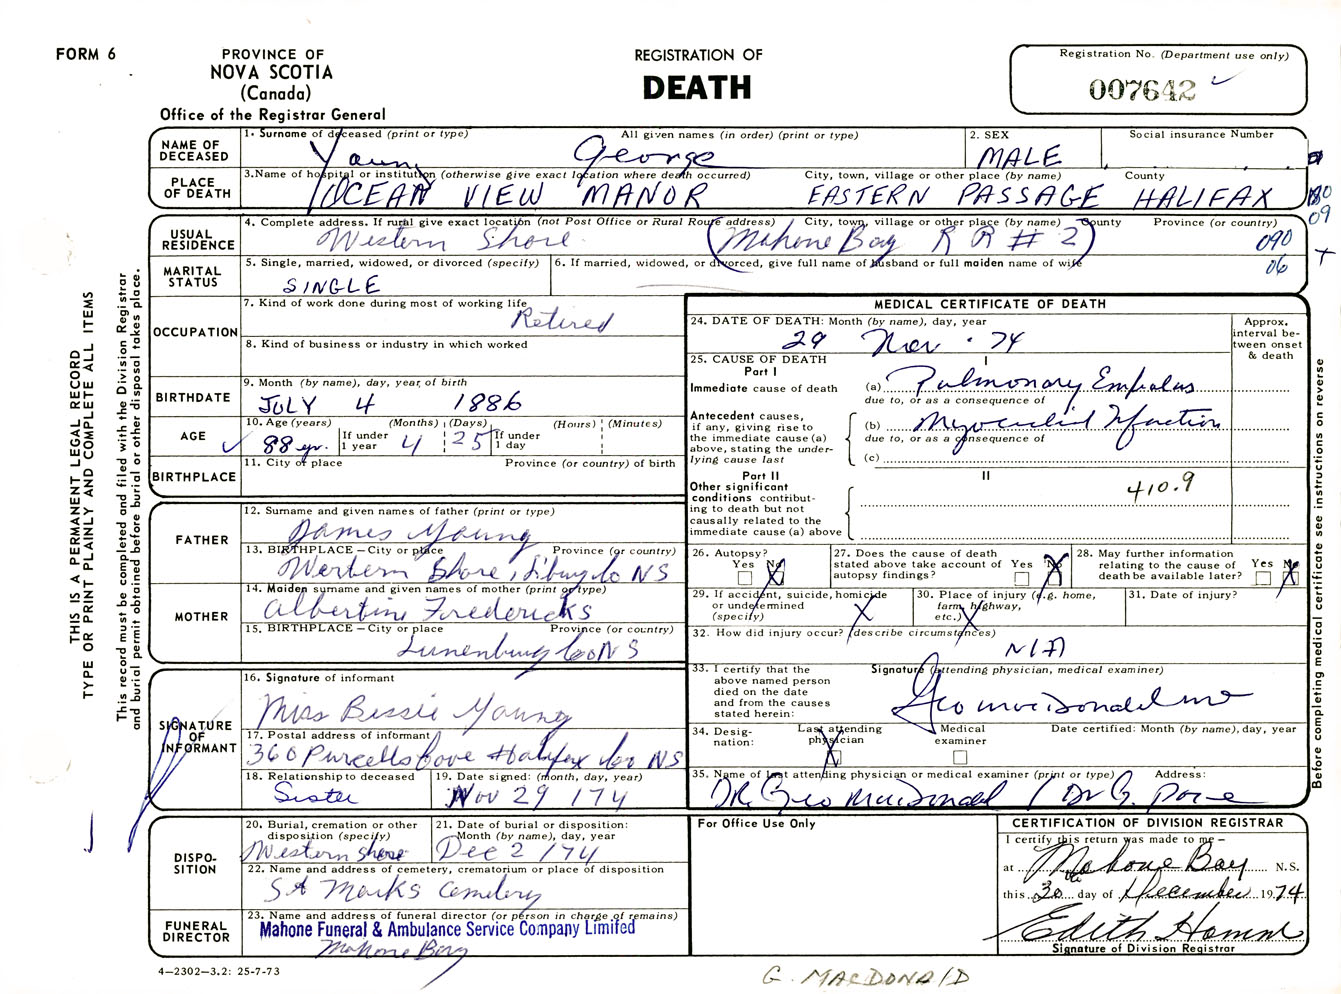 FORM 6
PROVINCE OF
NOVA SCOTIA
(Canada)
Office of the Registrar General
REGISTRATION OF
DEATH
Registration No. (Department use only)
007642
NAME OF DECEASED
1. Surname of deceased (print or type) All given names (in order) (print or type)
Young George
2. SEX
MALE
Social insurance Number
PLACE OF DEATH
3. Name of hospital or institution (otherwise give exact location where death occurred) City, town, village or other place (by name) County
OCEAN VIEW MANOR EASTERN PASSAGE HALIFAX
80
09
USUAL RESIDENCE
4. Complete address. If rural give exact location (not Post Office or Rural Route address) City, town, village or other place (by name) County Province (or country)
Western Shore (Mahone Bay R R # 2) 090
06
MARITAL STATUS
5. Single, married, widowed, or divorced (specify)
SINGLE
6. If married, widowed, or divorced, give full name of husband or full maiden name of wife
OCCUPATION
7. Kind of work done during most of working life
Retired
8. Kind of business or industry in which worked
BIRTHDATE
9. Month (by name), day, year, of birth
JULY 4 1886
AGE
10. Age (years) (Months) (Days) (Hours) (Minutes)
88 yr. If under 1 year 4 25 If under 1 day
BIRTHPLACE
11. City or place Province (or country) of birth
FATHER
12. Surname and given names of father (print or type)
James Young
13. BIRTHPLACE — City or place Province (or country)
Western Shore, Co NS
MOTHER
14. Maiden surname and given names of mother (print or type)
Albertine Fredericks
15. BIRTHPLACE — City or place Province (or country)
Lunenburg Co NS
SIGNATURE OF INFORMANT
16. Signature of informant
Miss Bessie Young
17. Postal address of informant
360 Purcells Cove Halifax Co NS
18. Relationship to deceased
Sister
19. Date signed: (month, day, year)
Nov 29 / 74
DISPO-SITION
20. Burial, cremation or other disposition (specify)
Western Shore
21. Date of burial or disposition: Month (by name), day, year
Dec 2 / 74
22. Name and address of cemetery, crematorium or place of disposition
St Marks Cemetery
FUNERAL DIRECTOR
23. Name and address of funeral director (or person in charge of remains)
Mahone Funeral & Ambulance Service Company Limited
Mahone Bay
4—2302—3.2: 25-7-73
MEDICAL CERTIFICATE OF DEATH
24. DATE OF DEATH: Month (by name), day, year
29 Nov. 74
Approx. interval be-tween onset & death
25. CAUSE OF DEATH
Part I I
Immediate cause of death (a) Pulmonary Embolus
due to, or as a consequence of
Antecedent causes, if any, giving rise to the immediate cause (a) above, stating the under-lying cause last
(b) Myocardial Infarction
due to, or as a consequence of
(c)
Part II II
Other significant conditions contribut-ing to death but not causally related to the immediate cause (a) above
410.9
26. Autopsy? Yes No X
27. Does the cause of death stated above take account of autopsy findings? Yes No X
28. May further information relating to the cause of death be available later? Yes No X
29. If accident, suicide, homicide or undetermined (specify)
X
30. Place of injury (e.g. home, farm, highway, etc.)
X
31. Date of injury?
32. How did injury occur? (describe circumstances)
N/A
33. I certify that the above named person died on the date and from the causes stated herein:
Signature (attending physician, medical examiner)
Geo MacDonald MD
34. Desig-nation: Last attending physician X Medical examiner Date certified: Month (by name), day, year
35. Name of last attending physician or medical examiner (print or type) Address:
DR. Geo MacDonald / Dr G.
For Office Use Only
CERTIFICATION OF DIVISION REGISTRAR
I certify this return was made to me —
at Mahone Bay N.S.
this 30 day of December 1974
Edith Hamm
Signature of Division Registrar
G. MACDONALD
THIS IS A PERMANENT LEGAL RECORD
TYPE OR PRINT PLAINLY AND COMPLETE ALL ITEMS
This record must be completed and filed with the Division Registrar
and burial permit obtained before burial or other disposal takes place.
Before completing medical certificate see instructions on reverse